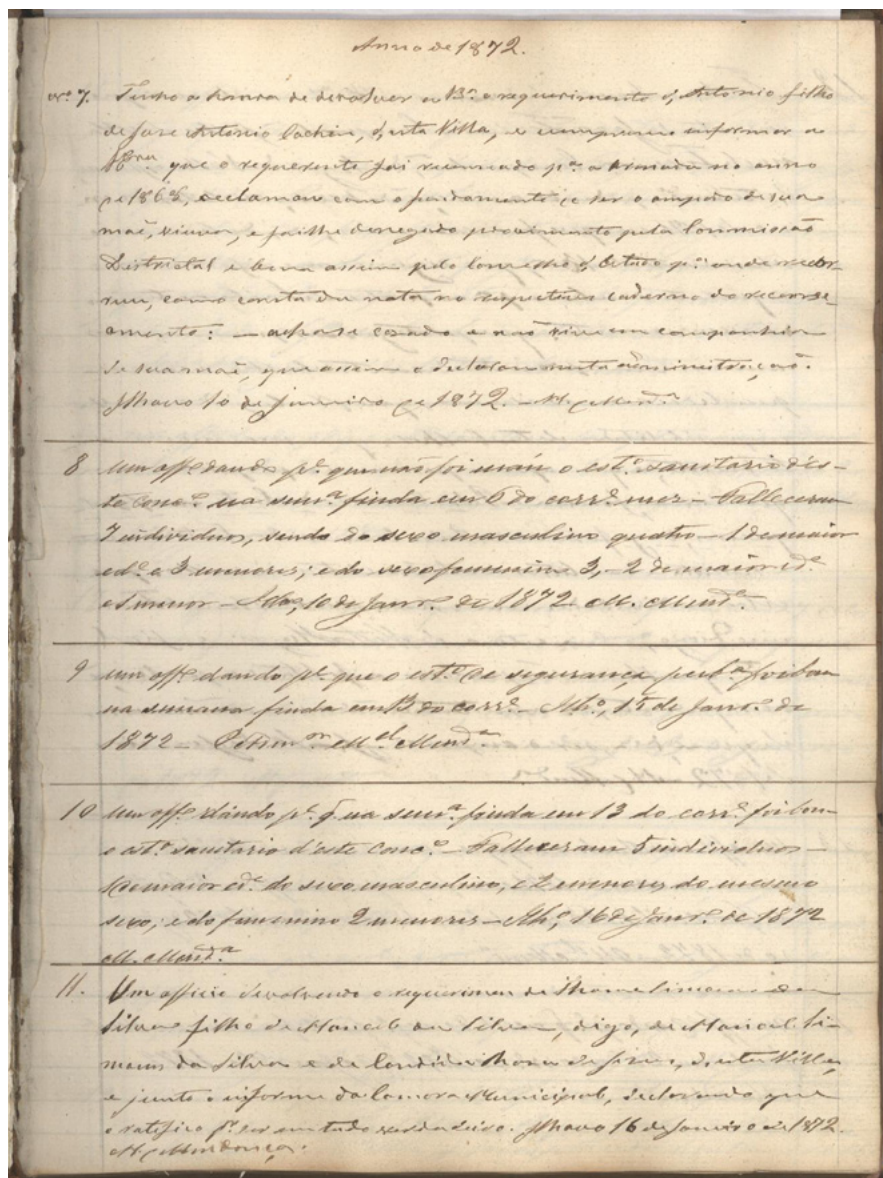 Anno de 1872.
Nº 7. Tenho a honra de devolver a V. Exª o requerimento d'Antonio filho
de José Antonio Cachim, d'esta Villa, e cumpre-me informar a
que o requerente foi recenseado pª a Armada no anno
de 1868, reclamou com o fundamento de ser o amparo de sua
mãe, viuva, e foi-lhe denegado provimento pela Commissão
Districtal e bem assim pelo Conselho d'Estado pª onde recor-
reu, como consta da nota no respectivo caderno do recense-
amento: — acha-se casado e não vive em companhia
de sua mãe, que assim o declarou nesta administração.
Ilhavo 10 de Janeiro de 1872. — M. Mendª
8 Um offº dando pe que não foi máu o estº sanitario d'es-
te concº na semª finda em 6 do corrº mez — Falleceram
7 individuos, sendo do sexo masculino quatro — 1 de maior
edº e 3 menores; e do sexo femenino 3, — 2 de maior idº
e 1 menor — Ilhº, 10 de Janrº de 1872 M. Mendª
9 Um offº dando pe que o estº de segurança pubª foi bom
na semana finda em 13 do corrº — Ilhº, 15 de Janrº de
1872 — O Admor Mel Mendª
10 Um offº dando pe q̃ na semª finda em 13 do corrº foi bom
o estº sanitario d'este concº — Falleceram 5 individuos —
1 de maior edº do sexo masculino, e 2 menores do mesmo
sexo; e do femenino 2 menores — Ilhº, 16 de Janrº de 1872
M. Mendª
11. Um officio devolvendo o requerimen de Thome Simoens da
Silva filho de Manoel da Silva, digo, de Manoel Si-
moens da Silva e de Candida Rosa de Jesus, d'esta Villa,
e junto o informe da Camara Municipal, declarando que
o ratifico pr ser em tudo verdadeiro. Ilhavo 16 de Janeiro de 1872.
M. Mendonça.